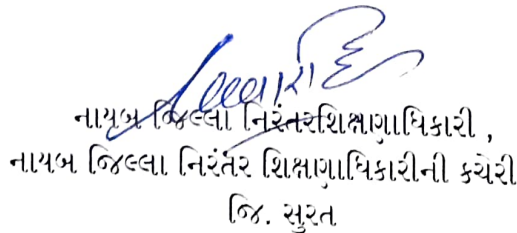 નાયબ જિલ્લા નિરંતરશિક્ષણાધિકારી ,
નાયબ જિલ્લા નિરંતર શિક્ષણાધિકારીની કચેરી
જિ. સુરત